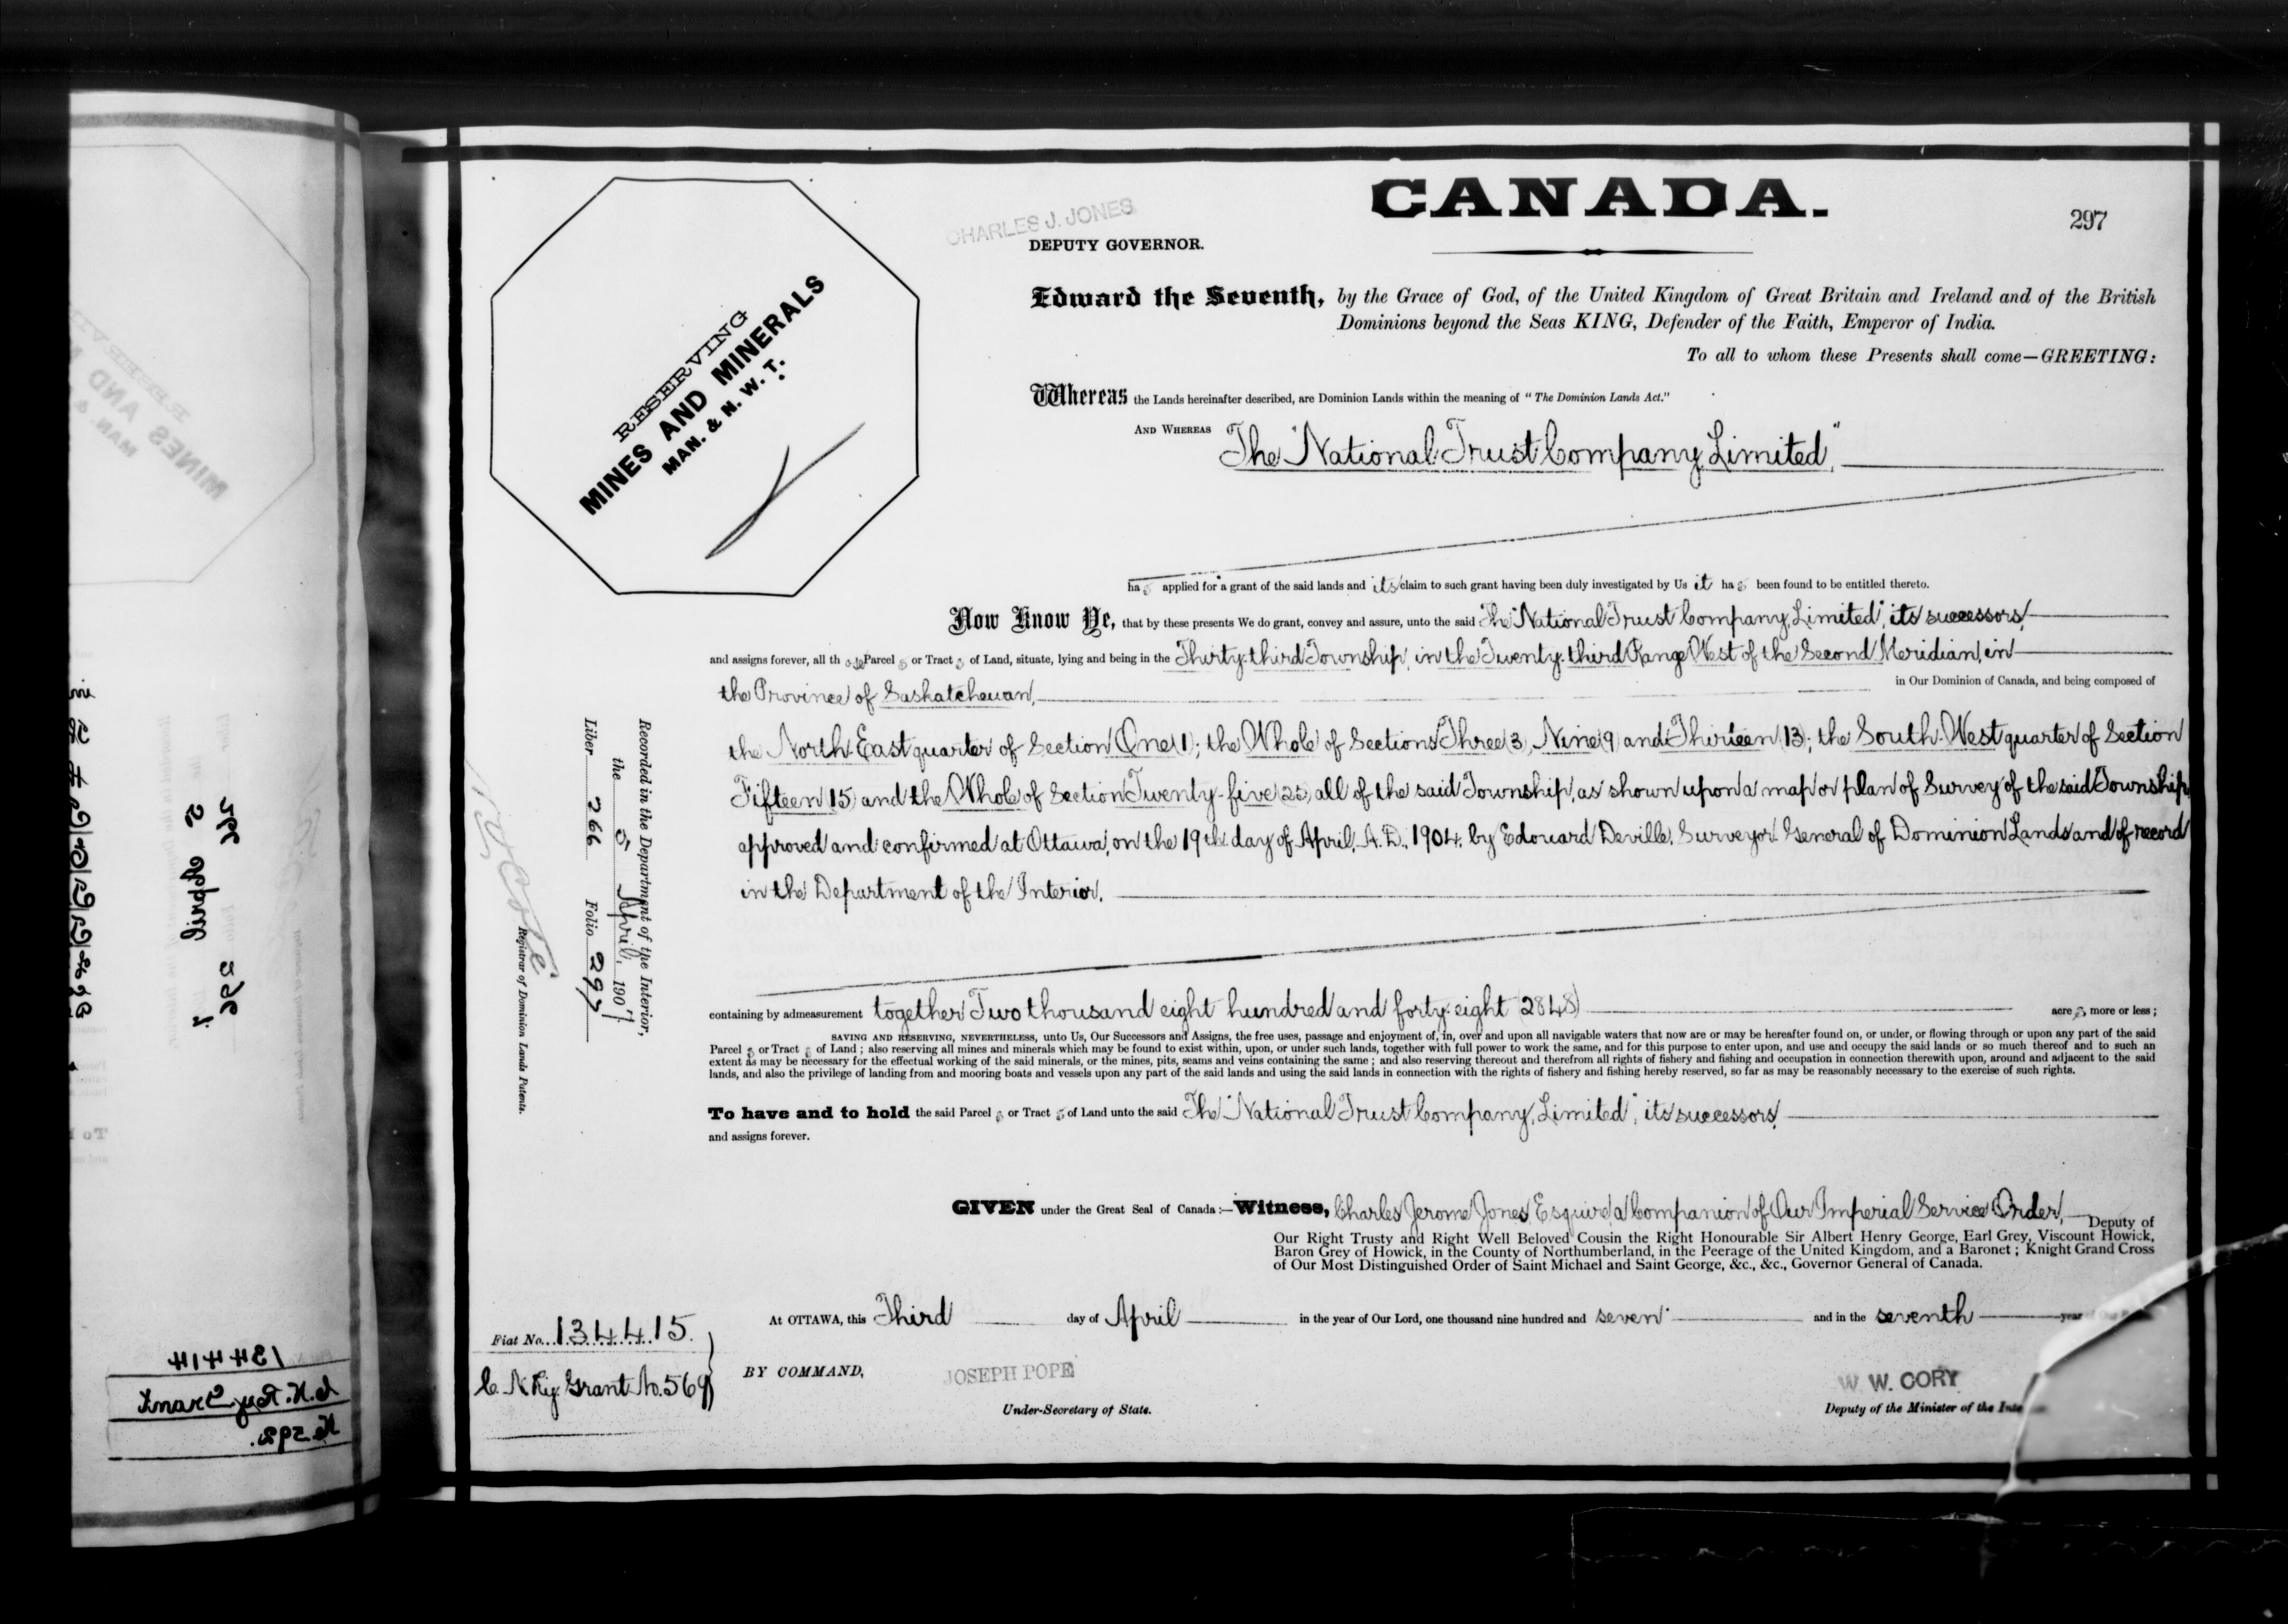 CANADA.
297
CHARLES J. JONES
DEPUTY GOVERNOR.
RESERVING
MINES AND MINERALS
MAN. & N. W. T.
Edward the Seventh, by the Grace of God, of the United Kingdom of Great Britain and Ireland and of the British
Dominions beyond the Seas KING, Defender of the Faith, Emperor of India.
To all to whom these Presents shall come—GREETING:
Whereas the Lands hereinafter described, are Dominion Lands within the meaning of "The Dominion Lands Act."
AND WHEREAS The "National Trust Company, Limited,"
has applied for a grant of the said lands and its claim to such grant having been duly investigated by Us it has been found to be entitled thereto.
Now Know Ye, that by these presents We do grant, convey and assure, unto the said The "National Trust Company, Limited", its successors
and assigns forever, all those Parcels or Tracts of Land, situate, lying and being in the Thirty-third Township, in the Twenty-third Range West of the Second Meridian, in
the Province of Saskatchewan, in Our Dominion of Canada, and being composed of
the North East quarter of Section One (1); the Whole of Sections Three (3), Nine (9) and Thirteen (13); the South West quarter of Section
Fifteen (15) and the Whole of Section Twenty-five (25), all of the said Township, as shown upon a map or plan of Survey of the said Township,
approved and confirmed at Ottawa, on the 19th day of April, A.D., 1904, by Edouard Deville, Surveyor General of Dominion Lands and of record
in the Department of the Interior.
containing by admeasurement together Two thousand eight hundred and forty-eight (2848) acres, more or less;
SAVING AND RESERVING, NEVERTHELESS, unto Us, Our Successors and Assigns, the free uses, passage and enjoyment of, in, over and upon all navigable waters that now are or may be hereafter found on, or under, or flowing through or upon any part of the said
Parcels or Tracts of Land; also reserving all mines and minerals which may be found to exist within, upon, or under such lands, together with full power to work the same, and for this purpose to enter upon, and use and occupy the said lands or so much thereof and to such an
extent as may be necessary for the effectual working of the said minerals, or the mines, pits, seams and veins containing the same; and also reserving thereout and therefrom all rights of fishery and fishing and occupation in connection therewith upon, around and adjacent to the said
lands, and also the privilege of landing from and mooring boats and vessels upon any part of the said lands and using the said lands in connection with the rights of fishery and fishing hereby reserved, so far as may be reasonably necessary to the exercise of such rights.
To have and to hold the said Parcels or Tracts of Land unto the said The "National Trust Company, Limited", its successors
and assigns forever.
GIVEN under the Great Seal of Canada:—Witness, Charles Jerome Jones, Esquire, a Companion of Our Imperial Service Order, Deputy of
Our Right Trusty and Right Well Beloved Cousin the Right Honourable Sir Albert Henry George, Earl Grey, Viscount Howick,
Baron Grey of Howick, in the County of Northumberland, in the Peerage of the United Kingdom, and a Baronet; Knight Grand Cross
of Our Most Distinguished Order of Saint Michael and Saint George, &c., &c., Governor General of Canada.
At OTTAWA, this Third day of April in the year of Our Lord, one thousand nine hundred and seven and in the seventh year
BY COMMAND,
JOSEPH POPE
Under-Secretary of State.
W. W. CORY
Deputy of the Minister of the
Fiat No. 134415.
C. N. Ry. Grant No. 569
Recorded in the Department of the Interior,
the 5 April, 1907
Liber 266 Folio 297
Registrar of Dominion Lands Patents.